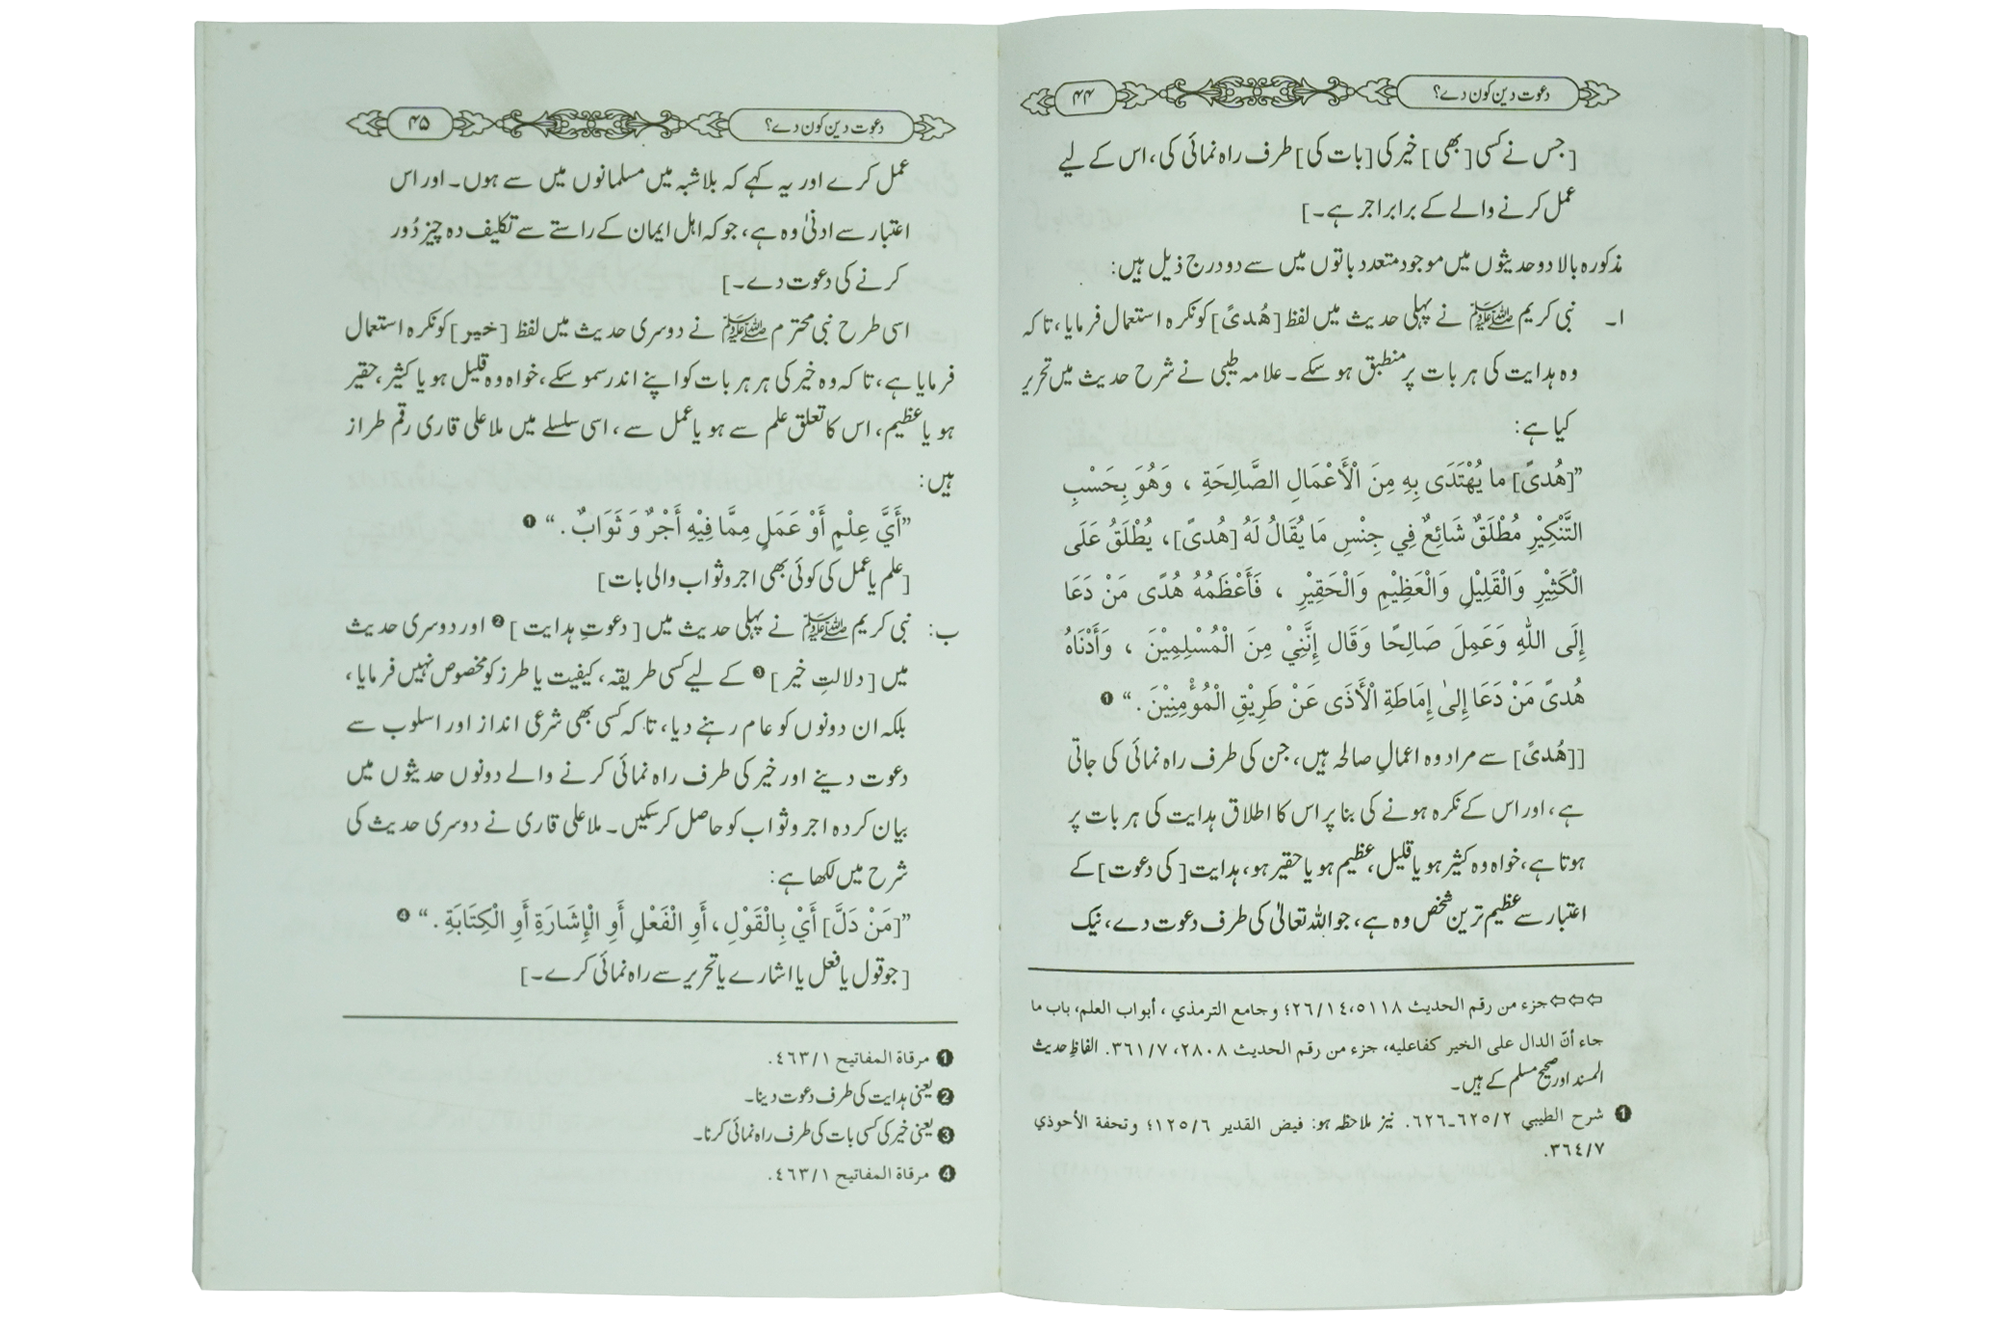 دعوت دین کون دے؟
۴۴
[جس نے کسی [بھی] خیر کی [بات کی] طرف راہ نمائی کی، اس کے لیے
عمل کرنے والے کے برابر اجر ہے۔]
مذکورہ بالا دو حدیثوں میں موجود متعدد باتوں میں سے دو درج ذیل ہیں:
ا۔ نبی کریم ﷺ نے پہلی حدیث میں لفظ [هُدىً] کو نکرہ استعمال فرمایا، تاکہ
وہ ہدایت کی ہر بات پر منطبق ہو سکے۔ علامہ طیبی نے شرح حدیث میں تحریر
کیا ہے:
”[هُدىً] ما يُهْتَدَى بِهِ مِنَ الْأَعْمَالِ الصَّالِحَةِ ، وَهُوَ بِحَسْبِ
التَّنْكِيْرِ مُطْلَقٌ شَائِعٌ فِي جِنْسِ مَا يُقَالُ لَهُ [هُدىً]، يُطْلَقُ عَلَى
الْكَثِيْرِ وَالْقَلِيْلِ وَالْعَظِيْمِ وَالْحَقِيْرِ ، فَأَعْظَمُهُ هُدًى مَنْ دَعَا
إِلَى اللّٰهِ وَعَمِلَ صَالِحًا وَقَال إِنَّنِيْ مِنَ الْمُسْلِمِيْنَ ، وَأَدْنَاهُ
هُدىً مَنْ دَعَا إِلىٰ إِمَاطَةِ الْأَذَى عَنْ طَرِيْقِ الْمُؤْمِنِيْنَ.“ ❶
[[هُدىً] سے مراد وہ اعمالِ صالحہ ہیں، جن کی طرف راہ نمائی کی جاتی
ہے، اور اس کے نکرہ ہونے کی بنا پر اس کا اطلاق ہدایت کی ہر بات پر
ہوتا ہے، خواہ وہ کثیر ہو یا قلیل، عظیم ہو یا حقیر ہو، ہدایت [کی دعوت] کے
اعتبار سے عظیم ترین شخص وہ ہے، جو اللہ تعالیٰ کی طرف دعوت دے، نیک
⇦⇦⇦ جزء من رقم الحديث ٥١١٨، ٢٦/١٤؛ وجامع الترمذي ، أبواب العلم، باب ما
جاء أنّ الدال على الخير كفاعليه، جزء من رقم الحديث ٢٨٠٨، ٣٦١/٧. الفاظِ حدیث
المسند اور صحیح مسلم کے ہیں۔
❶ شرح الطيبي ٦٢٥/٢ـ٦٢٦. نیز ملاحظہ ہو: فيض القدير ١٢٥/٦؛ وتحفة الأحوذي
٣٦٤/٧.
دعوت دین کون دے؟
۴۵
عمل کرے اور یہ کہے کہ بلا شبہ میں مسلمانوں میں سے ہوں۔ اور اس
اعتبار سے ادنیٰ وہ ہے، جو کہ اہل ایمان کے راستے سے تکلیف دہ چیز دُور
کرنے کی دعوت دے۔]
اسی طرح نبی محترم ﷺ نے دوسری حدیث میں لفظ [خير] کو نکرہ استعمال
فرمایا ہے، تاکہ وہ خیر کی ہر ہر بات کو اپنے اندر سمو سکے، خواہ وہ قلیل ہو یا کثیر، حقیر
ہو یا عظیم، اس کا تعلق علم سے ہو یا عمل سے، اسی سلسلے میں ملا علی قاری رقم طراز
ہیں:
”أَيَّ عِلْمٍ أَوْ عَمَلٍ مِمَّا فِيْهِ أَجْرٌ وَ ثَوَابٌ.“ ❶
[علم یا عمل کی کوئی بھی اجر و ثواب والی بات]
ب: نبی کریم ﷺ نے پہلی حدیث میں [دعوتِ ہدایت] ❷ اور دوسری حدیث
میں [دلالتِ خیر] ❸ کے لیے کسی طریقہ، کیفیت یا طرز کو مخصوص نہیں فرمایا،
بلکہ ان دونوں کو عام رہنے دیا، تاکہ کسی بھی شرعی انداز اور اسلوب سے
دعوت دینے اور خیر کی طرف راہ نمائی کرنے والے دونوں حدیثوں میں
بیان کردہ اجر و ثواب کو حاصل کر سکیں۔ ملا علی قاری نے دوسری حدیث کی
شرح میں لکھا ہے:
”[مَنْ دَلَّ] أَيْ بِالْقَوْلِ، أَوِ الْفَعْلِ أَوِ الْإِشَارَةِ أَوِ الْكِتَابَةِ.“ ❹
[جو قول یا فعل یا اشارے یا تحریر سے راہ نمائی کرے۔]
❶ مرقاة المفاتيح ٤٦٣/١.
❷ یعنی ہدایت کی طرف دعوت دینا۔
❸ یعنی خیر کی کسی بات کی طرف راہ نمائی کرنا۔
❹ مرقاة المفاتيح ٤٦٣/١.